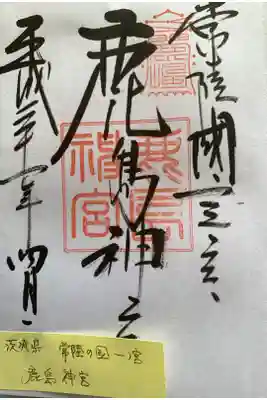 常陸國一之宮
鹿島神宮
鹿島神宮
平成三十一年四月一
茨城県 常陸の国一宮
鹿島神宮